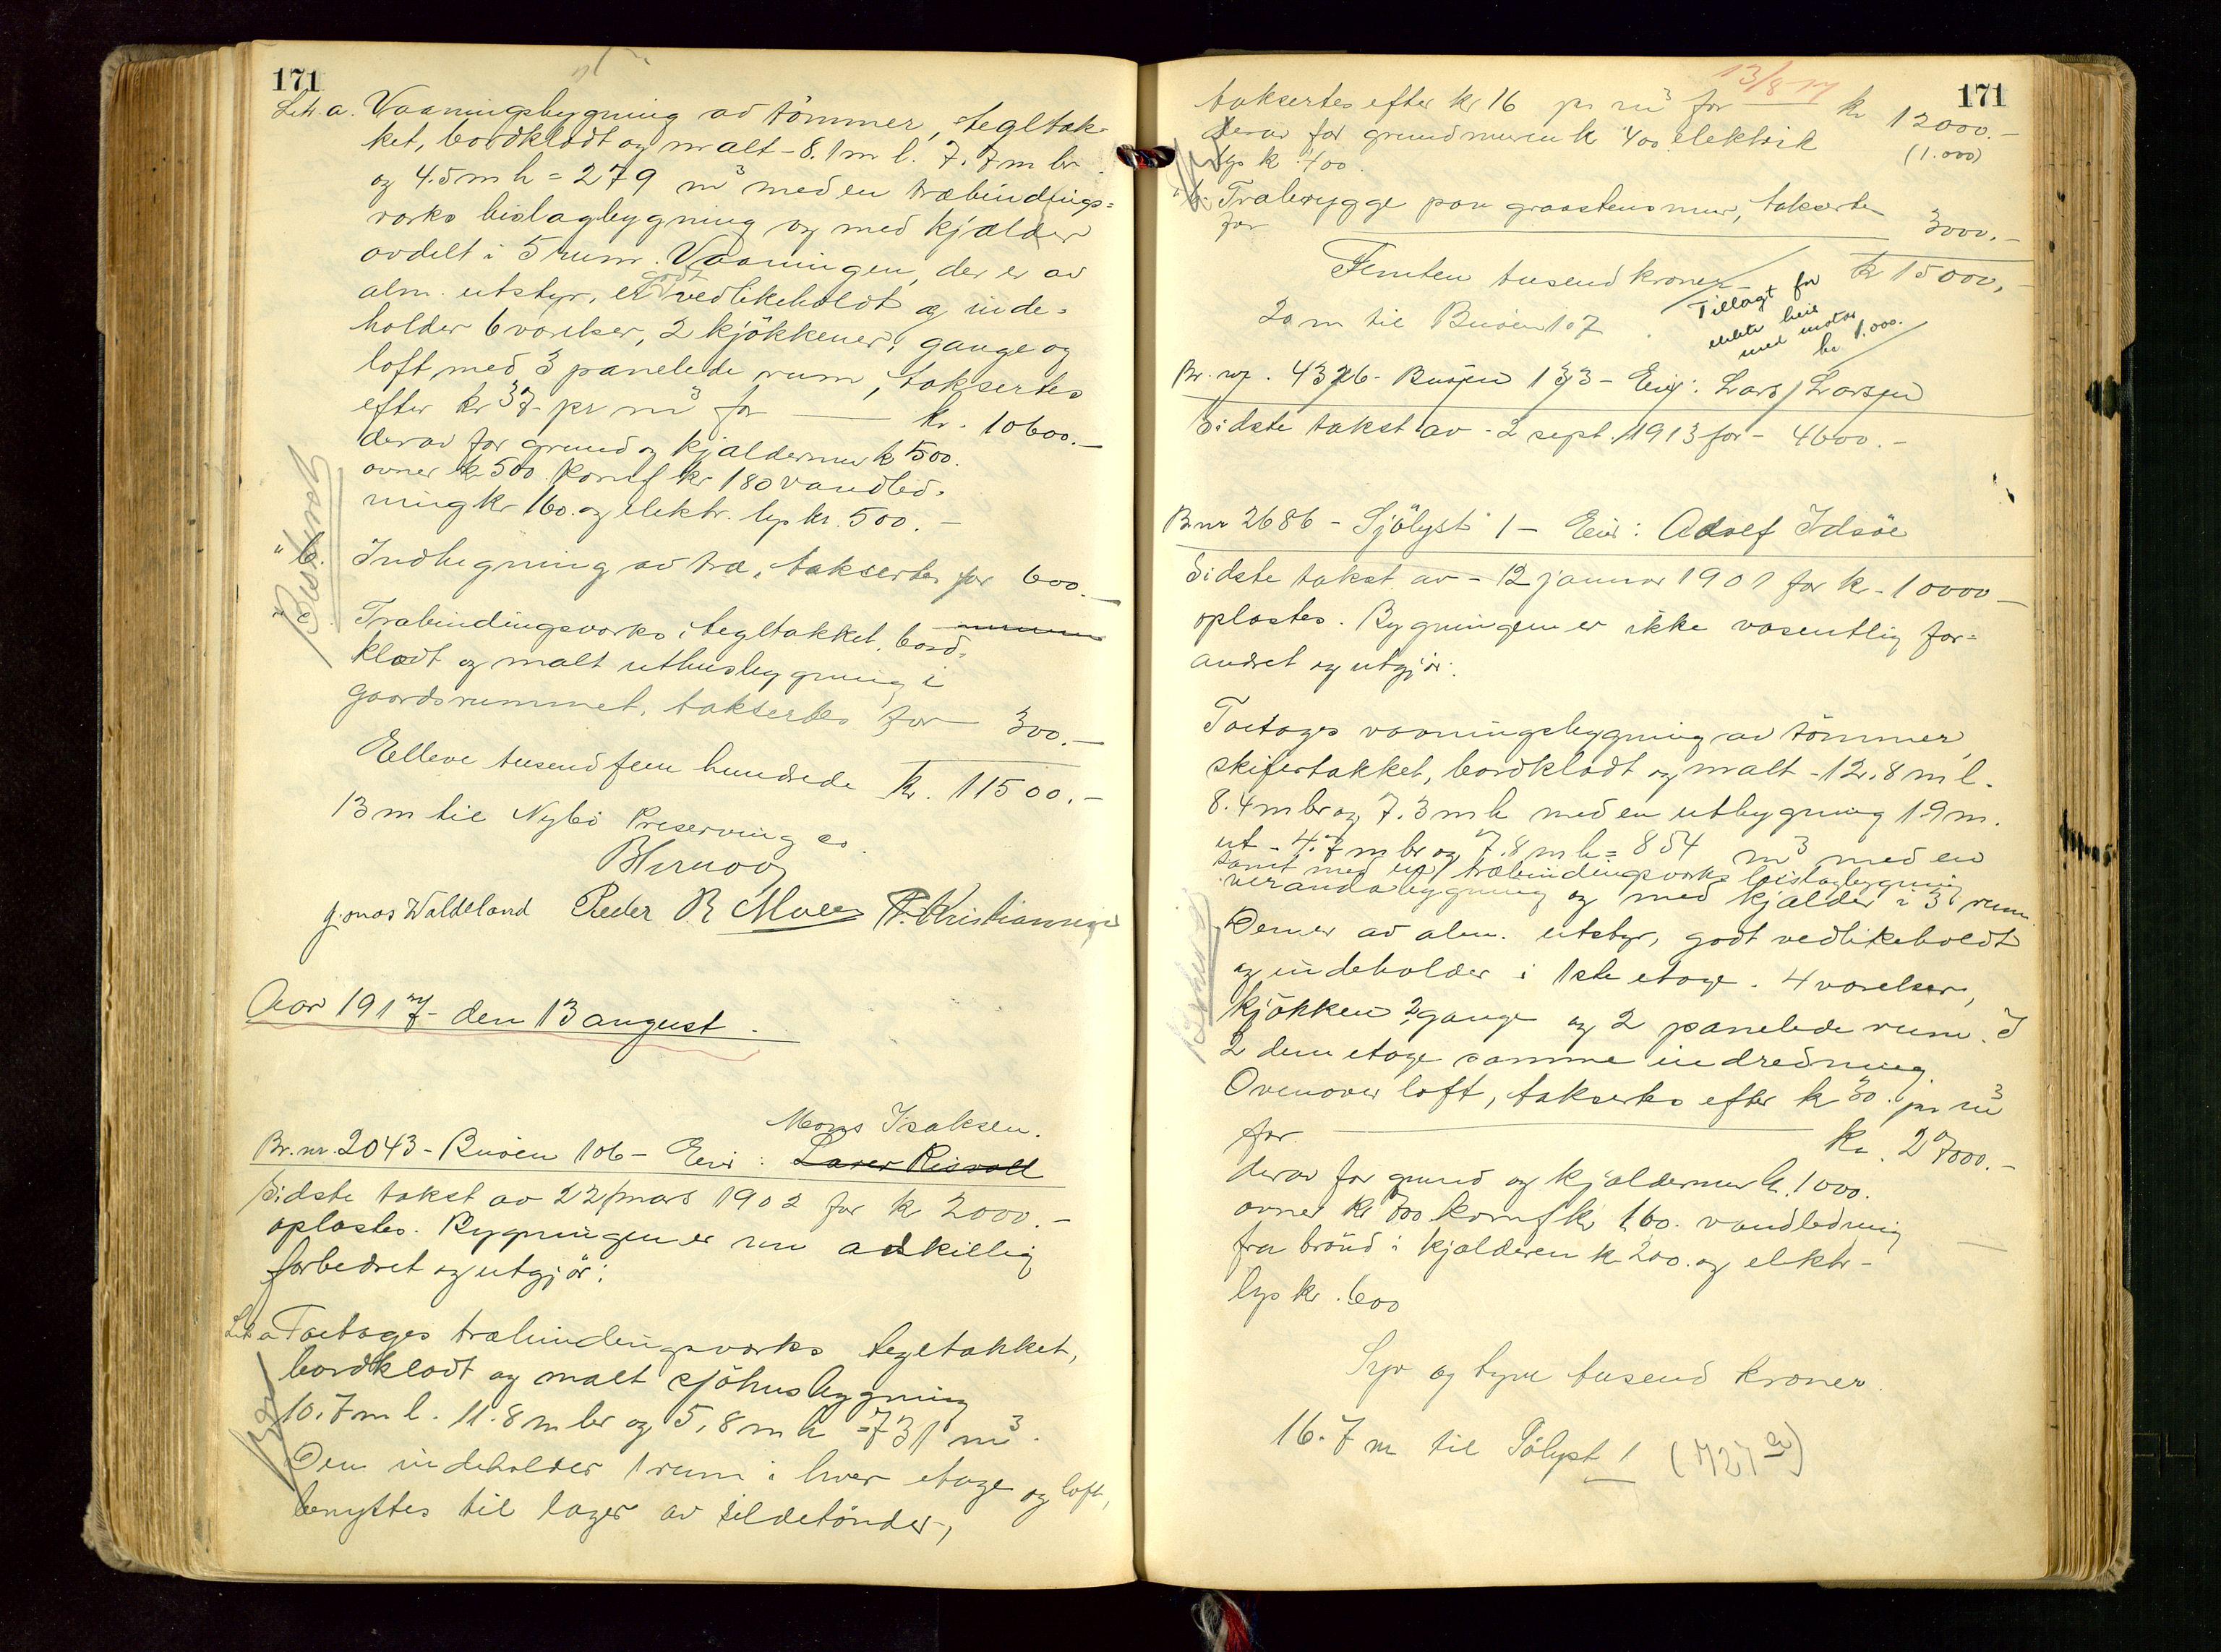 171
Lit. a. Vaaningsbygning av tömmer, tegltak-
ket, bordklædt og malt - 8.1 m l. 7.7 m br.
og 4.5 m h = 279 m³ med en træbindings-
verks bislagbygning og med kjælder
avdelt i 5 rum. Vaaningen, der er av
alm. utstyr, er godt vedlikeholdt og inde-
holder 6 værelser, 2 kjökkener, gange og
loft med 3 panelede rum, taksertes
efter kr 37- pr m³ for kr. 10600.-
derav for grund og kjældermur k 500.
ovner k 500. komf kr 180 vandled-
ning kr 160. og elektr. lys kr. 500.-
" b. Indhegning av træ, taksertes for 600.-
" c. Træbindingsverks, tegltakket, bord-
klædt og malt uthusbygning i
gaardsrummet, taksertes for 300.-
Elleve tusend fem hundrede kr. 11500.-
13 m til Nybö Preserving co.
Jonas Waldeland Peder R Moe P. Kristiansen
Aar 1917 - den 13 august.
Mons Isaksen.
Br. nr. 2043 - Buöen 106 - Eier: Laver Risvold
Sidste takst av 22 mars 1902 for k 2000.-
oplæstes. Bygningen er nu adskillig
forbedret og utgjör:
Lit a Toetages træbindingsverks tegltakket,
bordklædt og malt sjöhusbygning
10.7 m l. 11.8 m br og 5,8 m h = 731 m³.
Den indeholder 1 rum i hver etage og loft,
benyttes til lager av sildetönder,
13/8 17
171
taksertes efter kr 16 pr m³ for kr 12000.-
derav for grundmuren k 400. elektrik (1.000)
lys k 400.
" b. Træbrygge paa graastensmur, taksertes
for 3000.-
Femten tusend kroner kr 15000.-
Tillagt for
elektr heis
med motor
kr 1.000.
20 m til Buöen 107
Br. nr. 4326 - Buöen 133 - Eier: Lars Larsen
Sidste takst av - 2 sept. 1913 for - 4600.-
Bnr 2686 - Sjölyst 1 - Eier: Adolf Idsöe
Sidste takst av - 12 januar 1901 for k - 10000-
oplæstes. Bygningen er ikke væsentlig for-
andret og utgjör:
Toetages vaaningsbygning av tömmer,
skifertakket, bordklædt og malt - 12.8 m l.
8.4 m br og 7.3 m h med en utbygning 1.9 m.
ut - 4.7 m br og 7.8 m h = 854 m³ med en
samt med en træbindingsverks bislagbygning
verandabygning og med kjælder i 3 rum
Den er av alm. utstyr, godt vedlikeholdt
og indeholder i 1ste etage. 4 værelser,
kjökken, 2 gange og 2 panelede rum. I
2 den etage samme indredning.
Ovenover loft, taksertes efter k 30. pr m³
for kr. 27000.-
derav for grund og kjældermur k. 1000.
ovner kr 700 komf kr 160. vandledning
fra brönd i kjælderen k 200. og elektr-
lys kr. 600
Syv og tyve tusend kroner.
16.7 m til Sölyst 1